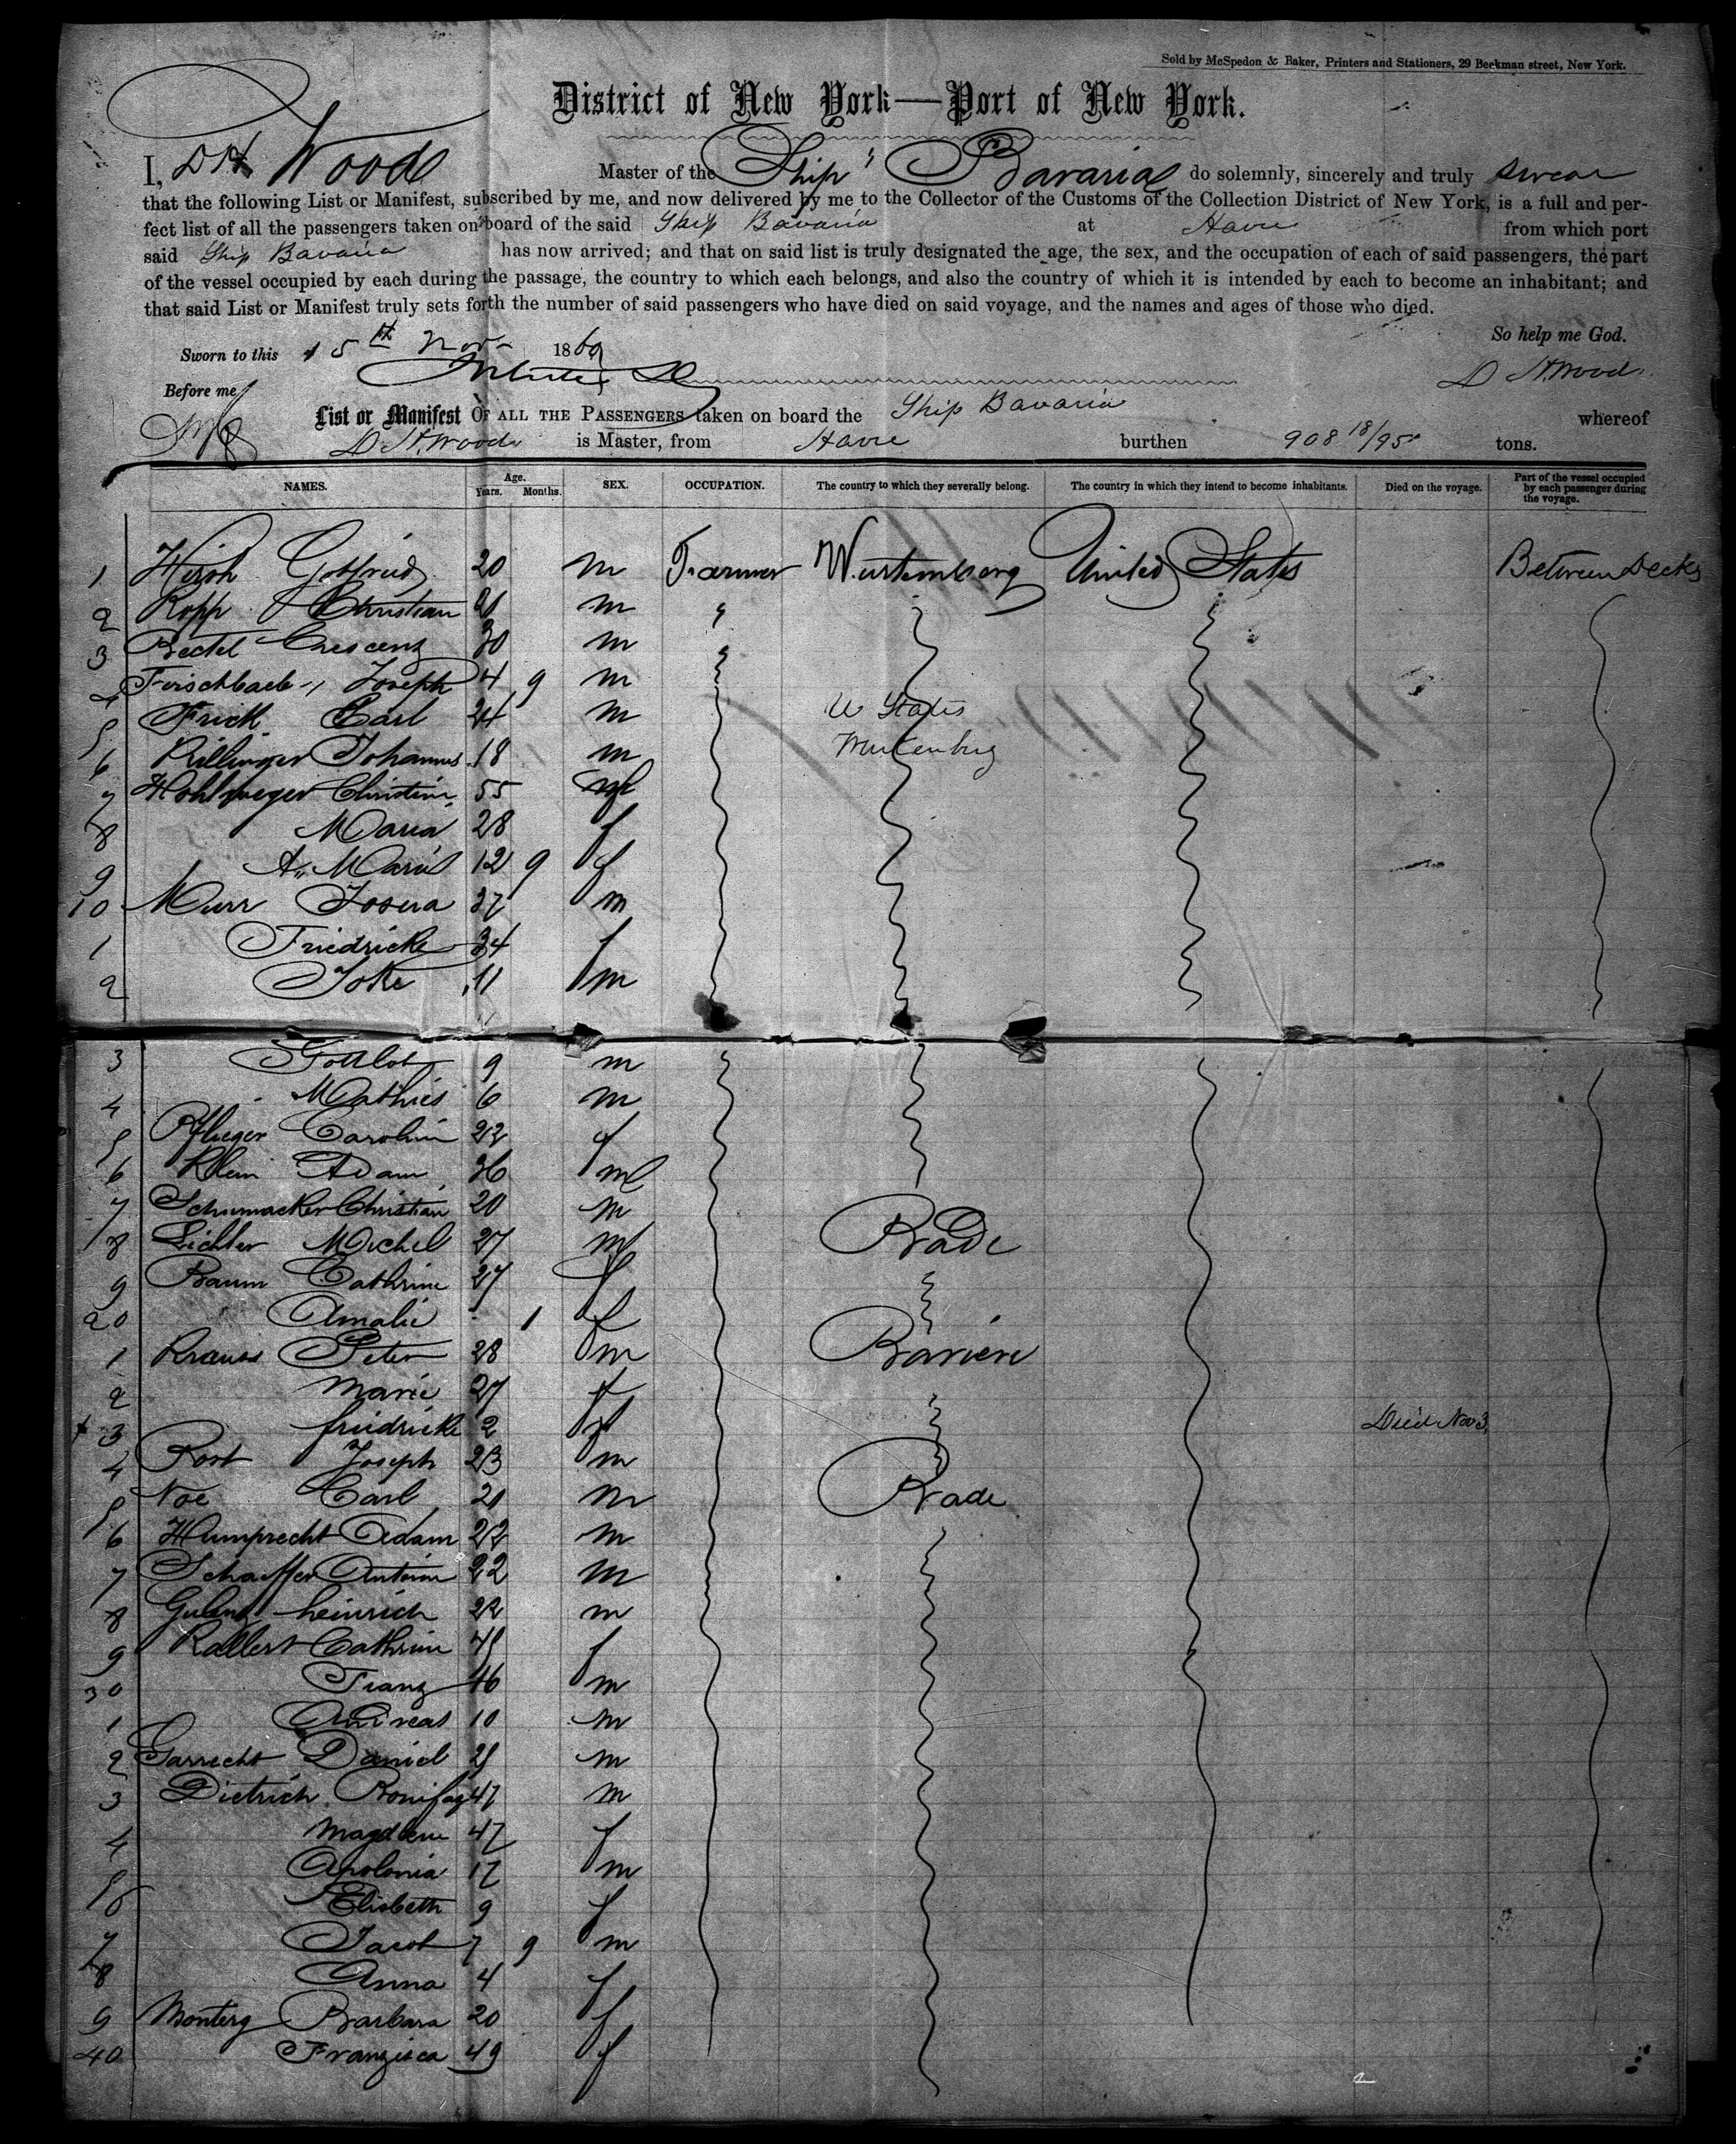 Sold by McSpedon & Baker, Printers and Stationers, 29 Beekman street, New York.
District of New York—Port of New York.
I, D H Wood Master of the Ship Bavaria do solemnly, sincerely and truly swear
that the following List or Manifest, subscribed by me, and now delivered by me to the Collector of the Customs of the Collection District of New York, is a full and per-
fect list of all the passengers taken on board of the said Ship Bavaria at Havre from which port
said Ship Bavaria has now arrived; and that on said list is truly designated the age, the sex, and the occupation of each of said passengers, the part
of the vessel occupied by each during the passage, the country to which each belongs, and also the country of which it is intended by each to become an inhabitant; and
that said List or Manifest truly sets forth the number of said passengers who have died on said voyage, and the names and ages of those who died.
So help me God.
Sworn to this 5th Nov 1860
D H. Wood
Before me
List or Manifest OF ALL THE PASSENGERS taken on board the Ship Bavaria whereof
D H. Wood is Master, from Havre burthen 908 18/95 tons.
NAMES. Age. Years. Months. SEX. OCCUPATION. The country to which they severally belong. The country in which they intend to become inhabitants. Died on the voyage. Part of the vessel occupied by each passenger during the voyage.
1 Hirsh Gottfried 20 m Farmer Wurtemberg United States Between Decks
2 Ropp Christian 21 m
3 Bechtel Crescenz 30 m
4 Joseph 4 9 m
5 Frick Carl 24 m U States
6 Killinger Johannes 18 m Wurtemberg
7 Christine 55
8 Maria 28 f
9 A. Maria 12 9 f
10 Murr Josua 37 m
1 Friedricke 34 f
2 11 m
3 Gottlob 9 m
4 Mathies 6 m
5 Pflieger Carolin 22 f
6 Klein Adam 36 m
7 Schumacker Christian 20 m
8 Lichter Michel 27 m Bade
9 Baum Cathrine 27 f
20 Amalie 1 f
1 Krauss Peter 28 m Baviere
2 Marie 27 f
3 friedricke 2 f Died Nov 3.
4 Rost Joseph 23 m
5 Noe Carl 21 m Bade
6 Humprecht Adam 22 m
7 Schaeffer Antoine 22 m
8 heinrich 22 m
9 Kallert Cathrine f
30 Franz 16 m
1 Andreas 10 m
2 Garrecht Daniel m
3 Dietrich Bonifaz 47 m
4 Magdlene 47 f
5 Apolonia 17 m
6 Elisbeth 9 f
7 Jacob 7 9 m
8 Anna 4 f
9 Barbara 20 f
40 Franzisca 49 f